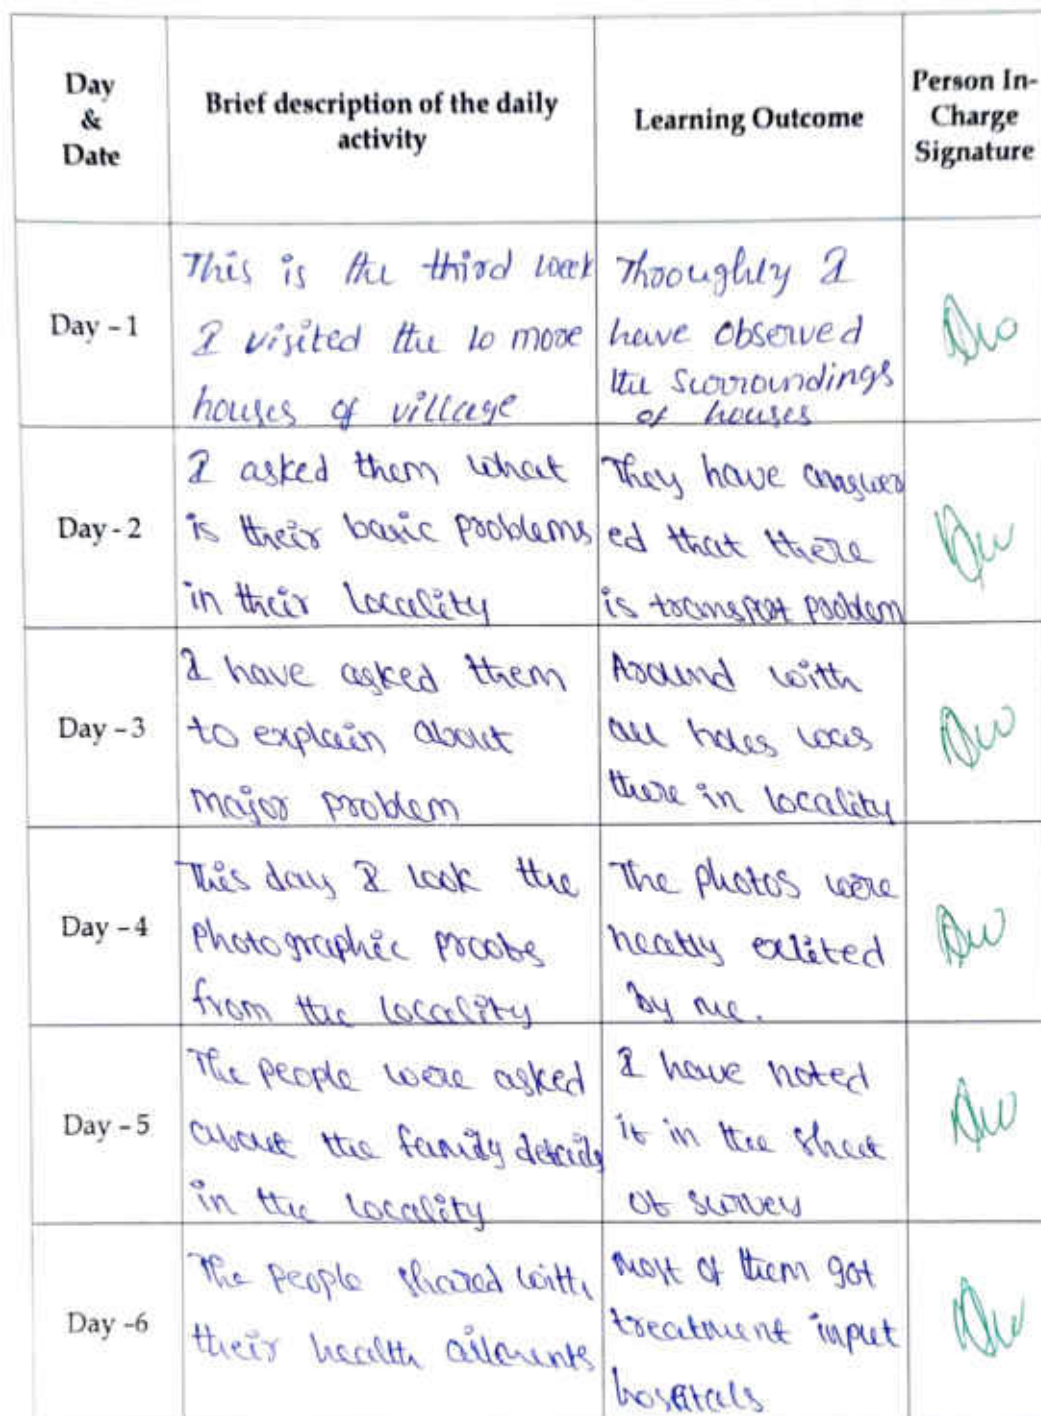 Day
&
Date
Brief description of the daily
activity
Learning Outcome
Person In-
Charge
Signature
Day - 1
This is the third week
I visited the 10 more
houses of village
Throughly I
have observed
the surroundings
of houses
Day - 2
I asked them what
is their basic problems
in their locality
They have answer
ed that there
is transport problem
Day - 3
I have asked them
to explain about
major problem
Around with
all holes was
there in locality
Day - 4
This day I took the
photographic proobs
from the locality
The photos were
neatly edited
by me.
Day - 5
The people were asked
about the family details
in the locality
I have noted
it in the sheet
of survey
Day -6
The people shared with
their health ailments
Most of them got
treatment input
hospitals